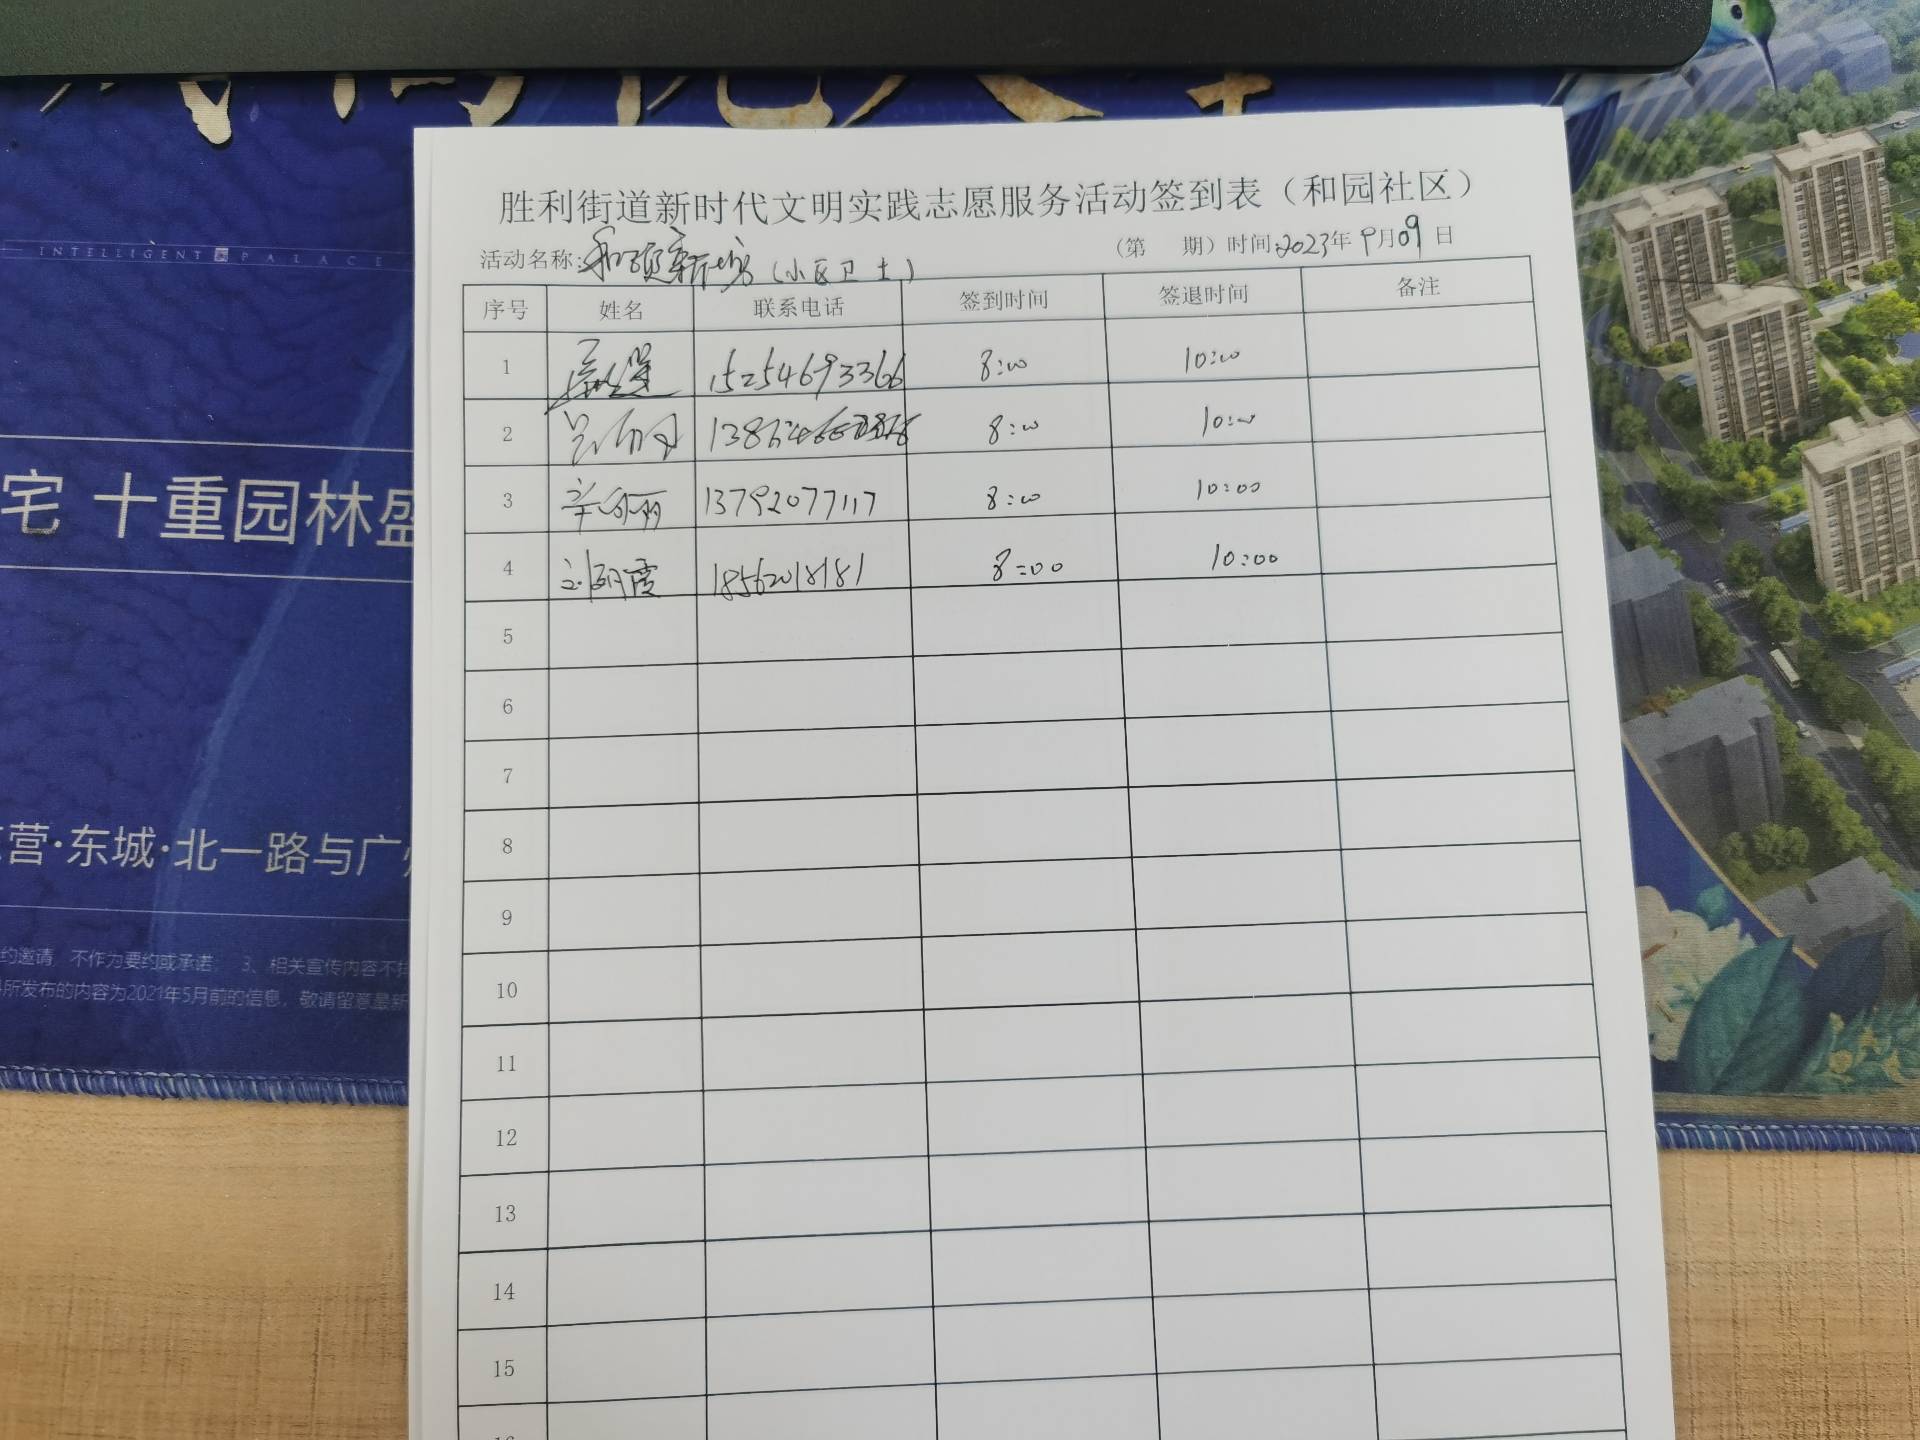 INTELLIGENT PALACE
宅 十重园林盛
营·东城·北一路与广
约邀请,不作为要约或承诺; 3、相关宣传内容不排
所发布的内容为2021年5月前的信息,敬请留意最新
胜利街道新时代文明实践志愿服务活动签到表(和园社区)
活动名称:和颐新坊(小区卫士) (第 期)时间:2023年9月09日
序号 姓名 联系电话 签到时间 签退时间 备注
1 15254693366 8:00 10:00
2 8:00 10:00
3 13792077117 8:00 10:00
4 刘明霞 18562018181 8:00 10:00
5
6
7
8
9
10
11
12
13
14
15